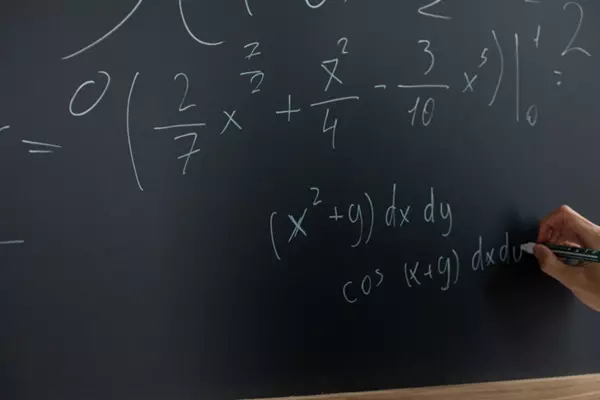 = 0 (2/7 x^7/2 + x^2/4 - 3/10 x^5) |_0^1 = 2
(x^2 + y) dx dy
cos (x+y) dx dy